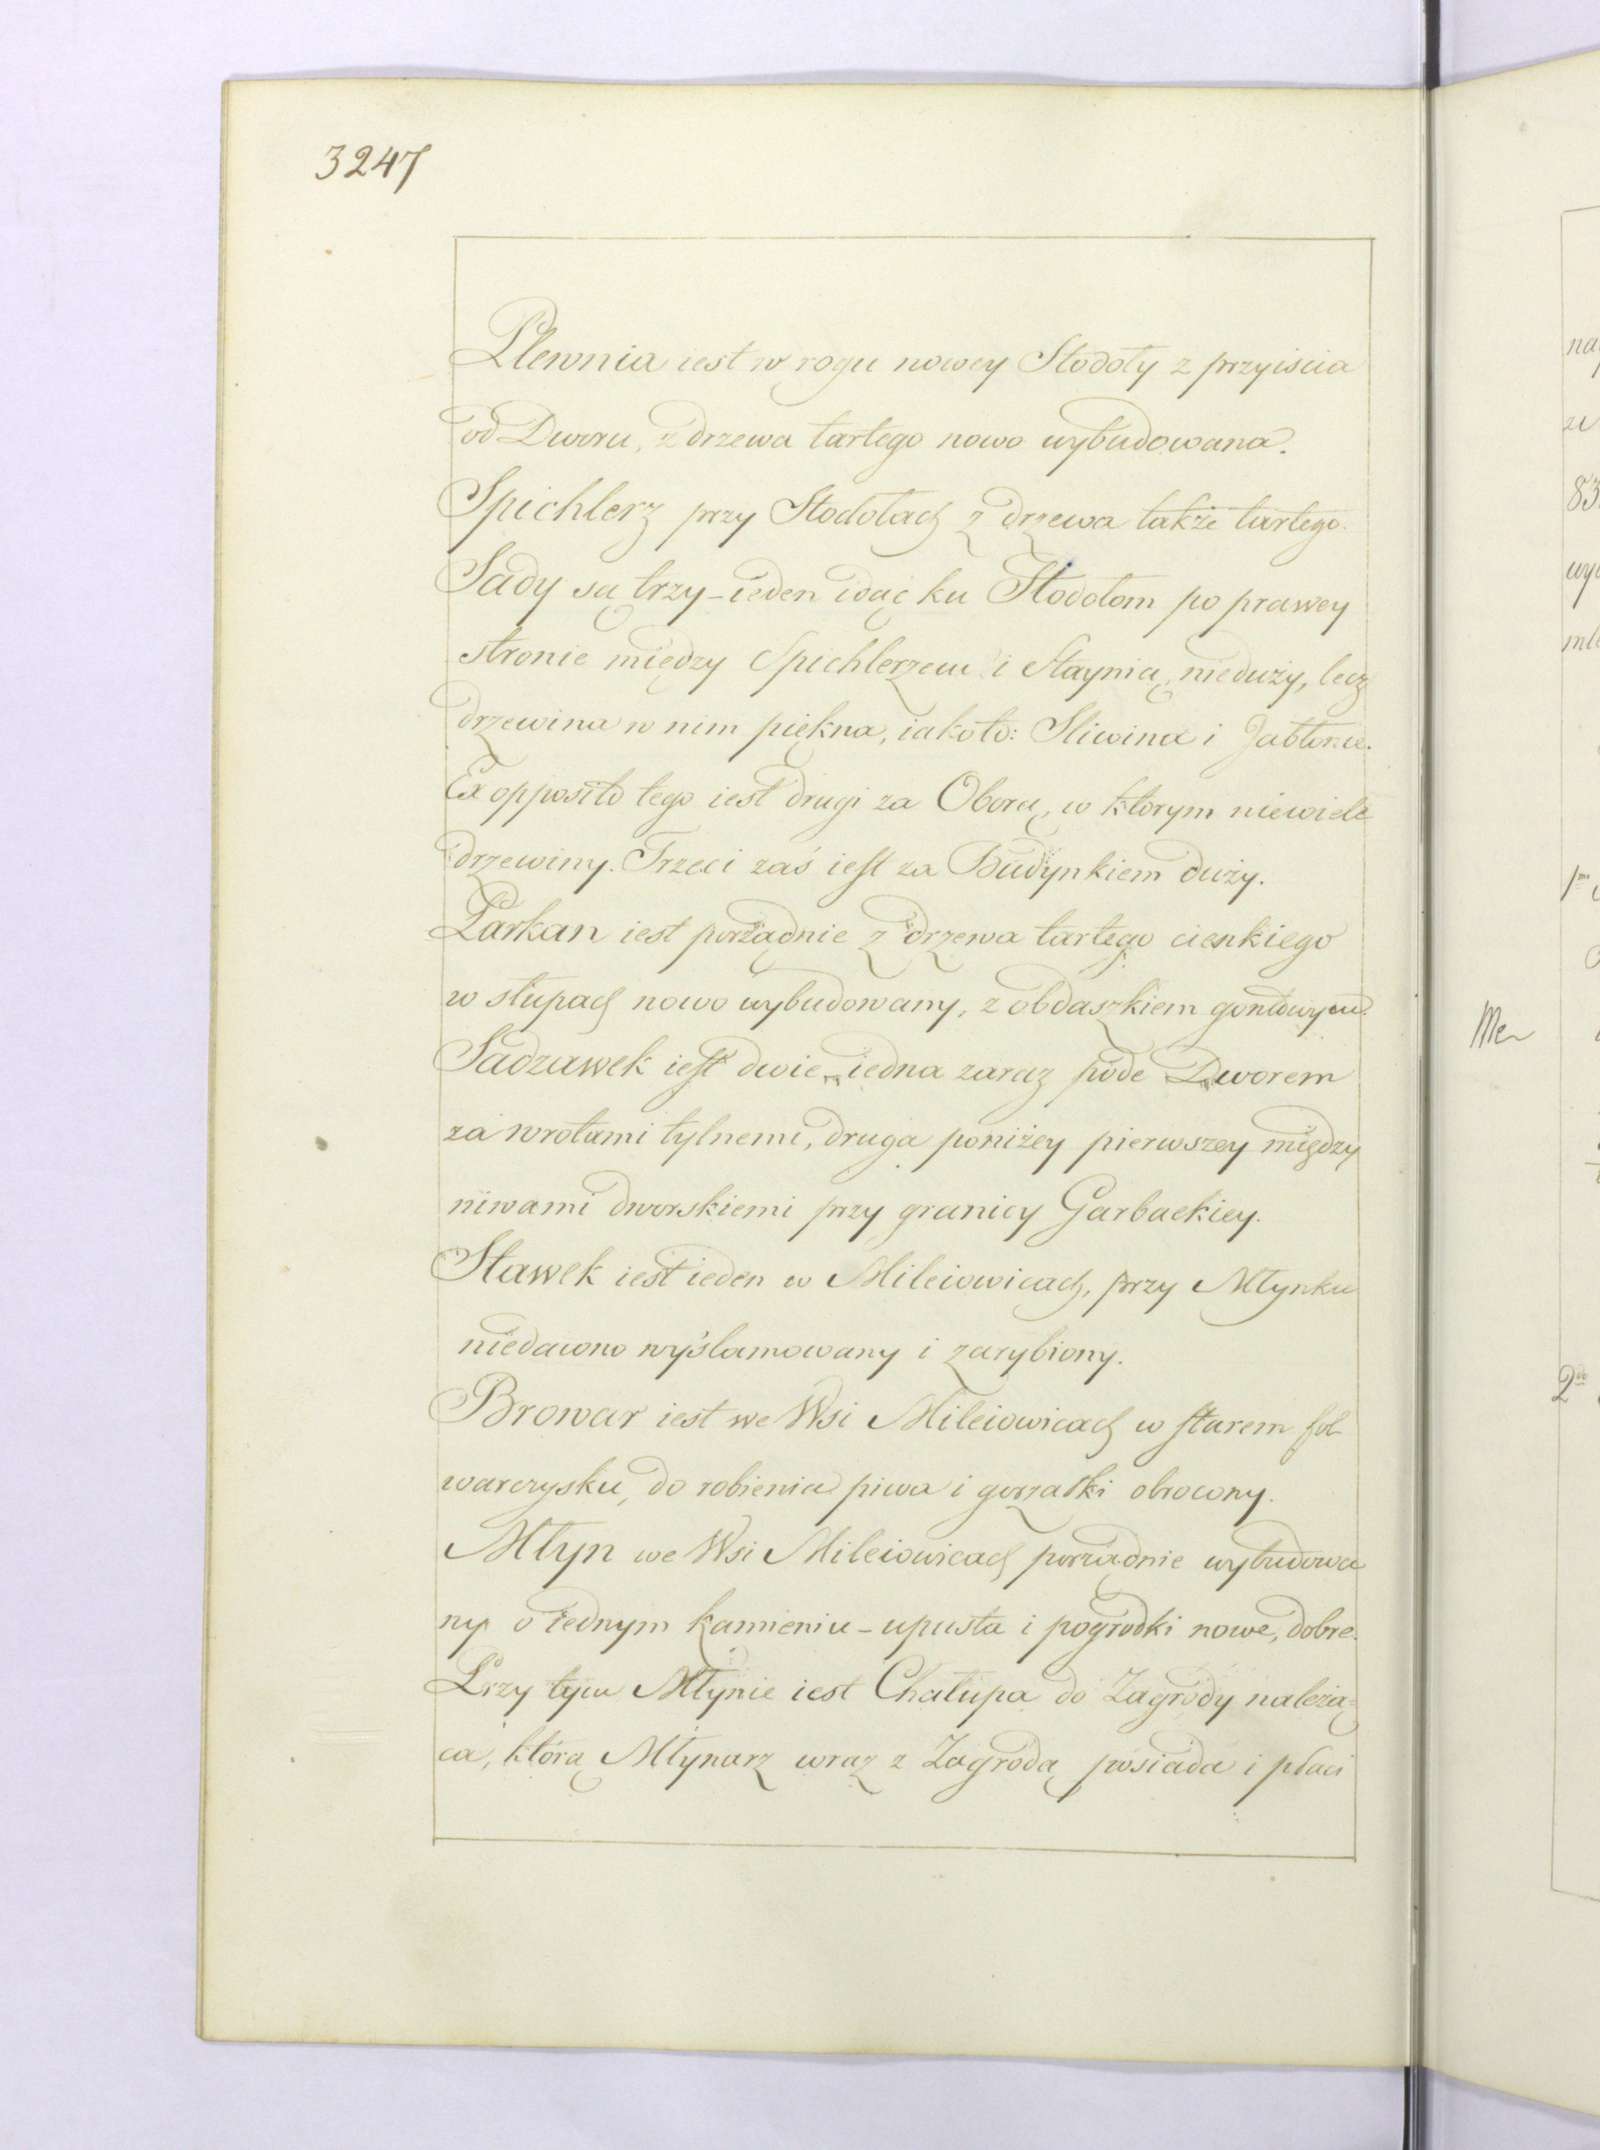 3247
Plewnia iest w rogu nowey Stodoły z przyiscia
od Dworu, z drzewa tartego nowo wybudowana.
Spichlerz przy Stodołach z drzewa także tartego.
Sady są trzy – ieden idąc ku Stodołom po prawey
stronie między Spichlerzem i Staynią, nieduży, lecz
drzewina w nim piękna, iakoto: Sliwina i Jabłonie.
Ex opposito tego iest drugi za Oborą, w ktorym niewiele
drzewiny. Trzeci zaś iest za Budynkiem duży.
Parkan iest porządnie z drzewa tartego cienkiego
w słupach nowo wybudowany, z obdaszkiem gontowym.
Sadzawek iest dwie, iedna zaraz pode Dworem
za wrotami tylnemi, druga poniżey pierwszey między
niwami dworskiemi przy granicy Garbackiey.
Stawek iest ieden w Mileiowicach, przy Młynku
niedawno wyślamowany i zarybiony.
Browar iest we Wsi Mileiowicach w starem fol
warczysku, do robienia piwa i gorzałki obrocony.
Młyn we Wsi Mileiowicach porządnie wybudowa
ny o iednym kamieniu – upusta i pogrodki nowe, dobre.
Przy tym Młynie iest Chałupa do Zagrody należą=
ca, którą Młynarz wraz z Zagrodą posiada i płaci
na
ze
83
wy
mle
1mo
Me
2do